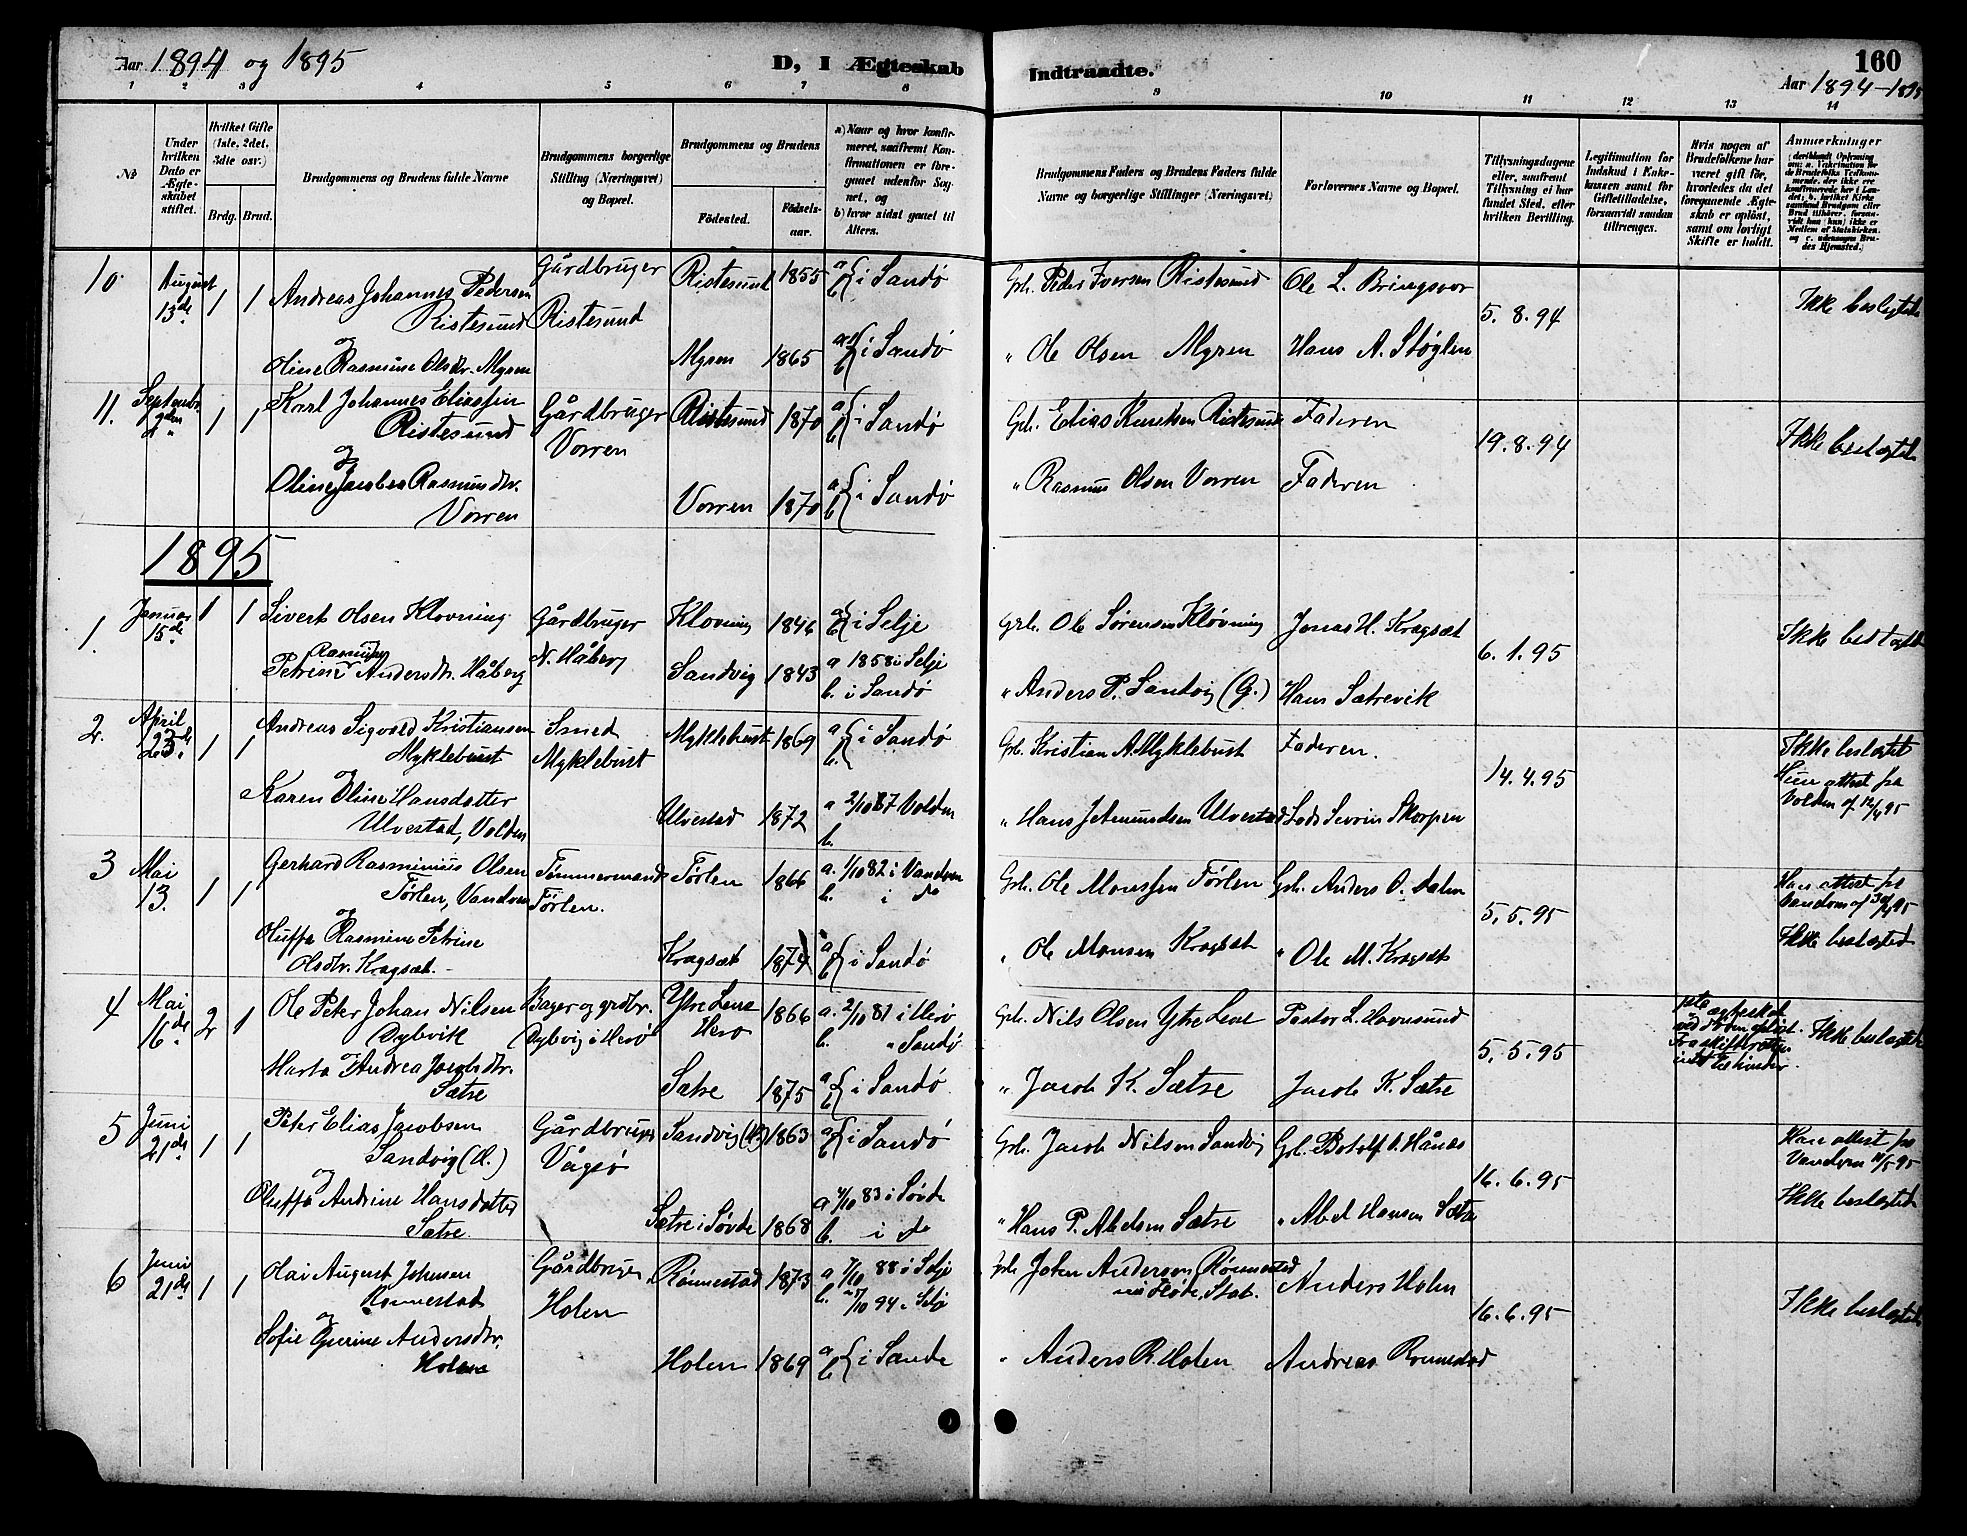 Aar 1894 og 1895
D, I Ægteskab Indtraadte.
160
Aar 1894-1895
1 2 3 4 5 6 7 8 9 10 11 12 13 14
No
Under hvilken Dato er Ægteskabet stiftet.
Hvilket Gifte (1ste, 2det, 3die osv.)
Brdg. Brud.
Brudgommens og Brudens fulde Navne
Brudgommens borgerlige Stilling (Næringsvei) og Bopæl.
Brudgommens og Brudens
Fødested. Fødselsaar.
a) Naar og hvor konfirmeret, saafremt Konfirmationen er foregaaet udenfor Sognet, og
b) hvor sidst gaaet til Alters.
Brudgommens Faders og Brudens Faders fulde Navne og borgerlige Stillinger (Næringsvei)
Forlovernes Navne og Bopæl.
Tillysningsdagene eller, saafremt Tillysning ei har fundet Sted, efter hvilken Bevilling.
Legitimation for Indskud i Enkekassen samt for Giftetilladelse, forsaavidt saadan tiltrænges.
Hvis nogen af Brudefolkene har været gift før, hvorledes da det foregaaende Ægteskab er opløst, samt om lovligt Skifte er holdt.
Anmærkninger
10. August 13de 1 1 Andreas Johannes Pedersen Ristesund
Gårdbruger Ristesund
Ristesund 1855 a b i Sandø
Grb. Peder Iversen Ristesund
Ole L. Bringsvor
5. 8. 94
Ikke beslegtede
og
Oline Rasmine Olsdtr. Myren
Myren 1865 a b i Sandø
" Ole Olsen Myren
Hans A. Støylen
11. Septembr. 2den 1 1 Karl Johannes Eliassen Ristesund
Gårdbruger Vorren
Ristesund 1870 a b i Sandø
Grb. Elias Knutsen Ristesund
Faderen
19. 8. 94
Ikke beslegtet
og
Oline Jacobea Rasmusdtr. Vorren
Vorren 1870 a b i Sandø
" Rasmus Olsen Vorren
Faderen
1895
1. Januar 15de 1 1 Sivert Olsen Klovning
Gårdbruger N. Håberg
Klovning 1846 a b i Selje
Grb. Ole Sørensen Kløvning
Jonas H. Kragsæt
6. 1. 95
Petrine Andersdtr. Håberg
Sandvig 1843 a 1858 i Selje
b. i Sandø
" Anders P. Sandvig (G.)
Hans Sætrevik
2. April 23de 1 1 Andreas Sigvald Kristiansen Myklebust
Smed Myklebust
Myklebust 1869 a b. i Sandø
Grb. Kristian A. Myklebust
Faderen.
14. 4. 95
Ikke beslegtet
Hun attest fra Volden af 12/4 95
og
Karen Oline Hansdatter Ulvestad, Volden
Ulvestad 1872 a 2/10 87 Volden
b.
" Hans Jetmundsen Ulvestad
Lods Severin Skorpen
3 Mai 13. 1 1 Gerhard Rasminius Olsen Førlen, Vandven
Tømmermand Førlen.
Førlen 1866 a. 1/10 82 i Vandven
b. i do
Grb. Ole Monssen Førlen
Grb. Anders O. Dalen
5. 5. 95
Han attest fra Vandven af 30/4 95
Ikke beslegted
og
Oluffa Rasmine Petrine Olsdtr. Kragsæt.
Kragsæt 1874 a b i Sandø
" Ole Monsen Kragsæt
" Ole M. Kragsæt
4 Mai 16de 2 1 Ole Peter Johan Nilsen Dybvik
Bager og grdbr. Dybvig i Herø
Ytre Leine Herø 1866 a. 2/10 81 i Herø
b. " Sandø
Grb. Nils Olsen Ytre Leine
Pastor L. Havnsund
5. 5. 95
Ikke beslegtet
Marta Andrea Jacobsdtr. Sætre
Sætre 1875 a b i Sandø
" Jacob K. Sætre
Jacob K. Sætre
5 Juni 21de 1 1 Peter Elias Jacobsen Sandvig (U.)
Gårdbruger Vågsø
Sandvig 1863 a b i Sandø
Grb. Jacob Nilsen Sandvig
Grb. Botolf O. Hånes
16. 6. 95
Han attest fra Vandven 11/5 95
Ikke beslegted
og
Oluffa Andrine Hansdatter Sætre
Sætre i Søvde 1868 a 4/10 83 i Søvde
b. i do
" Hans P. Abelsen Sætre
" Abel Hansen Sætre
6 Juni 21de 1 1 Olai August Johnsen Rønnestad
Gårdbruger Holen
Rønnestad 1873 a. 7/10 88 i Selje
Grb. John Anderson Rønnestad
Anders Holen
16. 6. 95
Ikke beslegtede
og
Sofie Gurine Andersdtr. Holen
Holen 1869 a b i Sande
" Anders R. Holen
Andreas Rønnestad